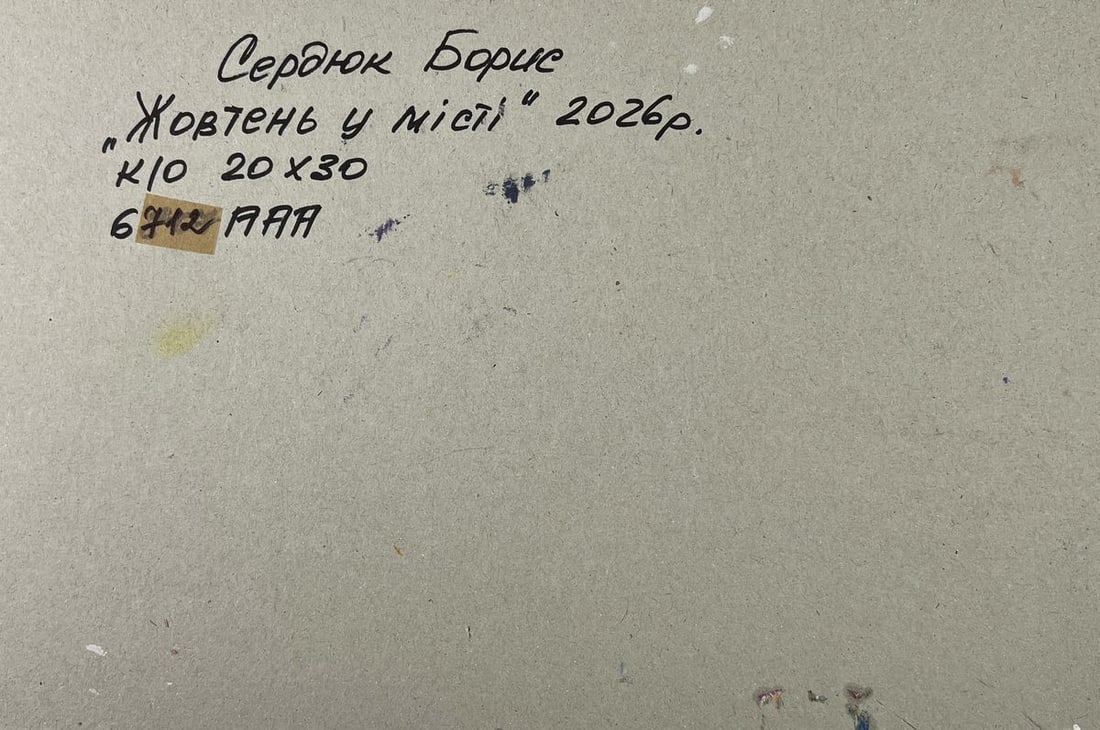 Сердюк Борис
„Жовтень у місті“ 2026р.
К/О 20х30
6712 ААА